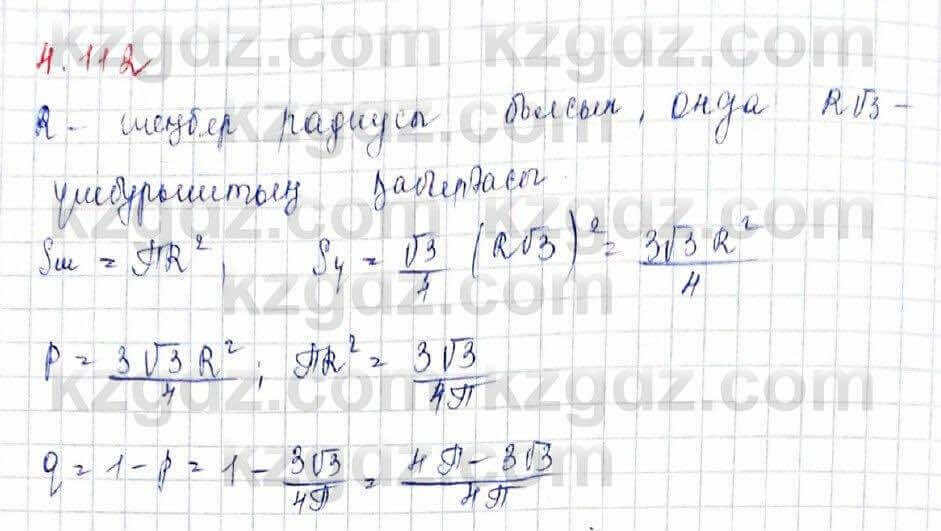 4.112
R - шеңбер радиусы болсын, онда R√3 -
үшбұрыштың қабырғасы.
Sш = πR², Sү = √3/4 (R√3)² = 3√3 R²/4
P = 3√3 R²/4 ; πR² = 3√3/4π
q = 1 - p = 1 - 3√3/4π = 4π - 3√3/4π
kzgdz.com kzgdz.com
kzgdz.com
kzgdz.com kzgdz.com
kzgdz.com
kzgdz.com kzgdz.com
kzgdz.com